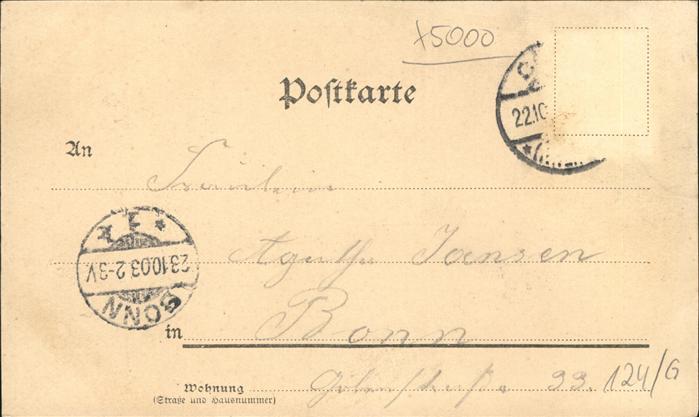 +5000
Postkarte
22.10
An
Fräulein
Agathe Jansen
BONN
23.10.03 2-3V.
in Bonn
Wohnung
(Straße und Hausnummer)
33.
124/G